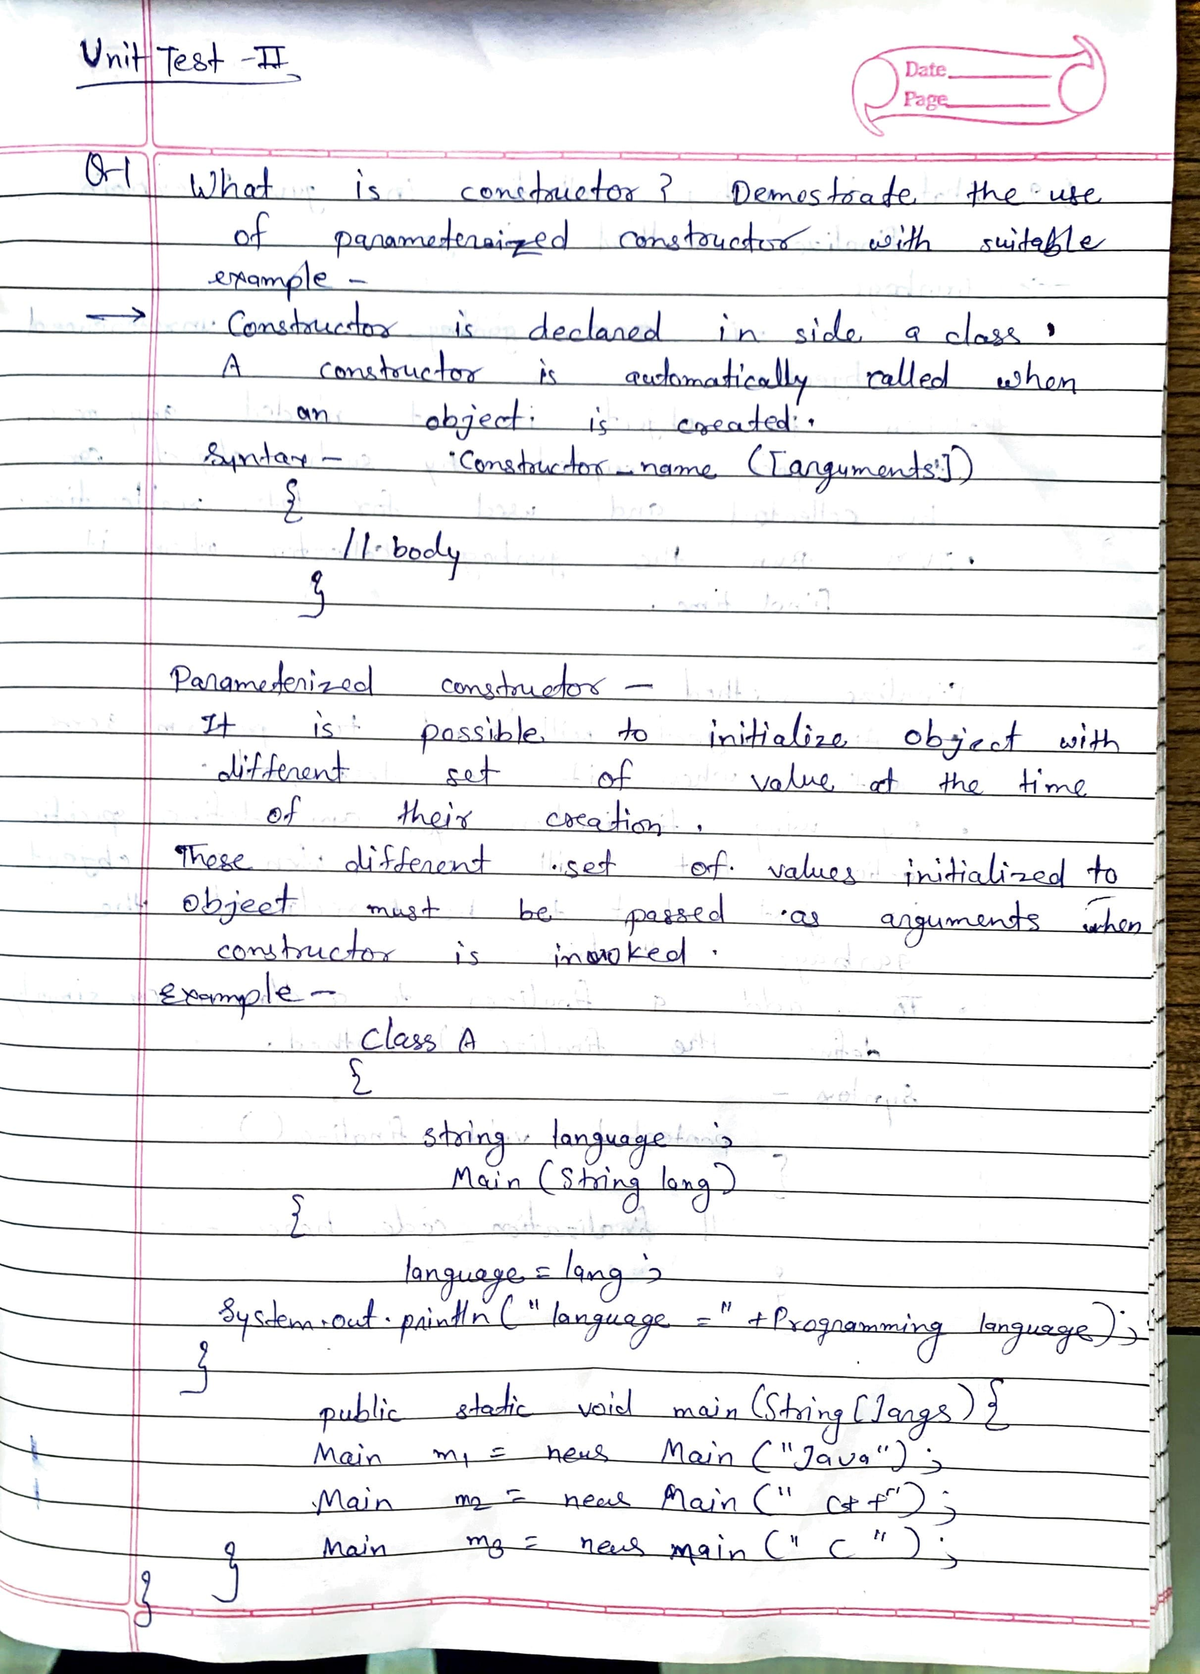 Unit Test -II
Date
Page
Q-1 What is constructor? Demostrate the use
of parametersized constructor with suitable
example -
→ Constructor is declared in side a class.
A constructor is automatically called when
an object is created.
Syntax - Constructor_name ([arguments])
{
// body
}
Parameterized constructor -
It is possible to initialize object with
different set of value at the time
of their creation.
These different set of values initialized to
object must be passed as arguments when
constructor is invoked.
Example -
Class A
{
string language ;
Main (String lang)
{
language = lang ;
System.out.println (" language =" + Programming language) ;
}
public static void main (String [] args) {
Main m1 = new Main ("Java") ;
Main m2 = new Main (" c++") ;
Main m3 = new main (" C ") ;
}
}